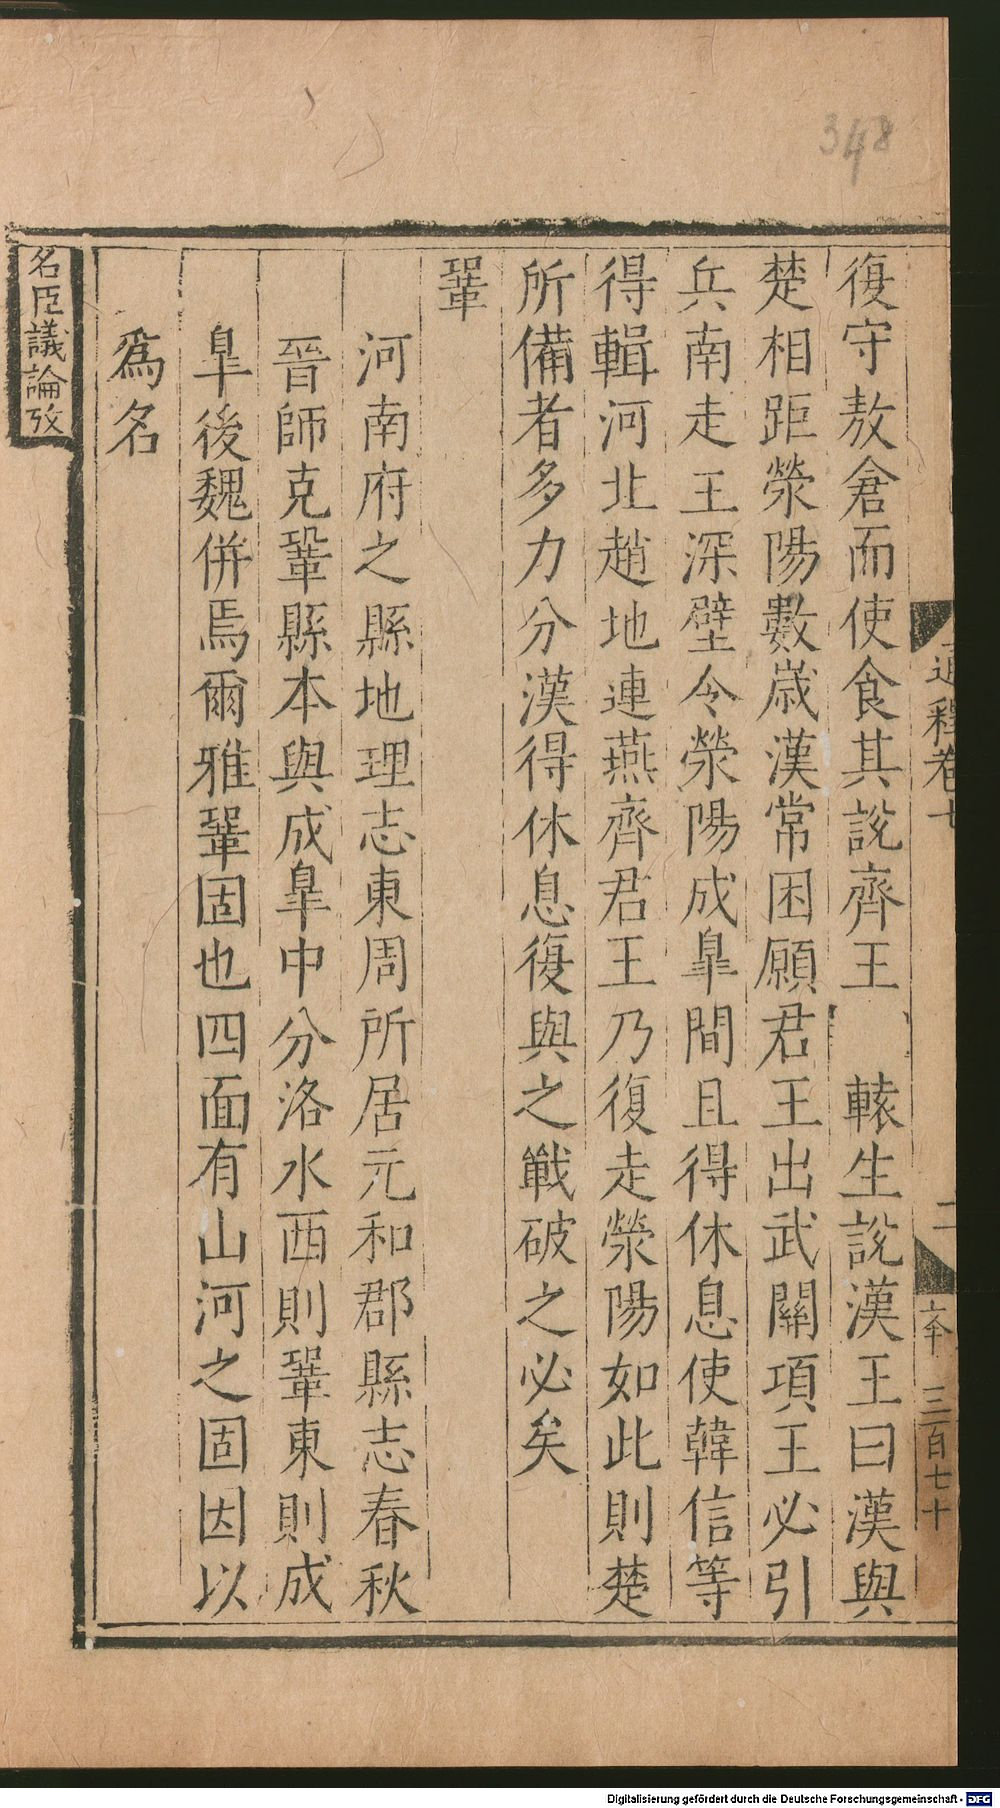 348
通釋卷七
二
三百七十
復守敖倉而使食其說齊王　轅生說漢王曰漢與
楚相距滎陽數歲漢常困願君王出武關項王必引
兵南走王深壁令滎陽成皐間且得休息使韓信等
得輯河北趙地連燕齊君王乃復走滎陽如此則楚
所備者多力分漢得休息復與之戰破之必矣
鞏
河南府之縣地理志東周所居元和郡縣志春秋
晉師克鞏縣本與成皐中分洛水西則鞏東則成
皐後魏併焉爾雅鞏固也四面有山河之固因以
爲名
名臣議論攷
Digitalisierung gefördert durch die Deutsche Forschungsgemeinschaft - DFG